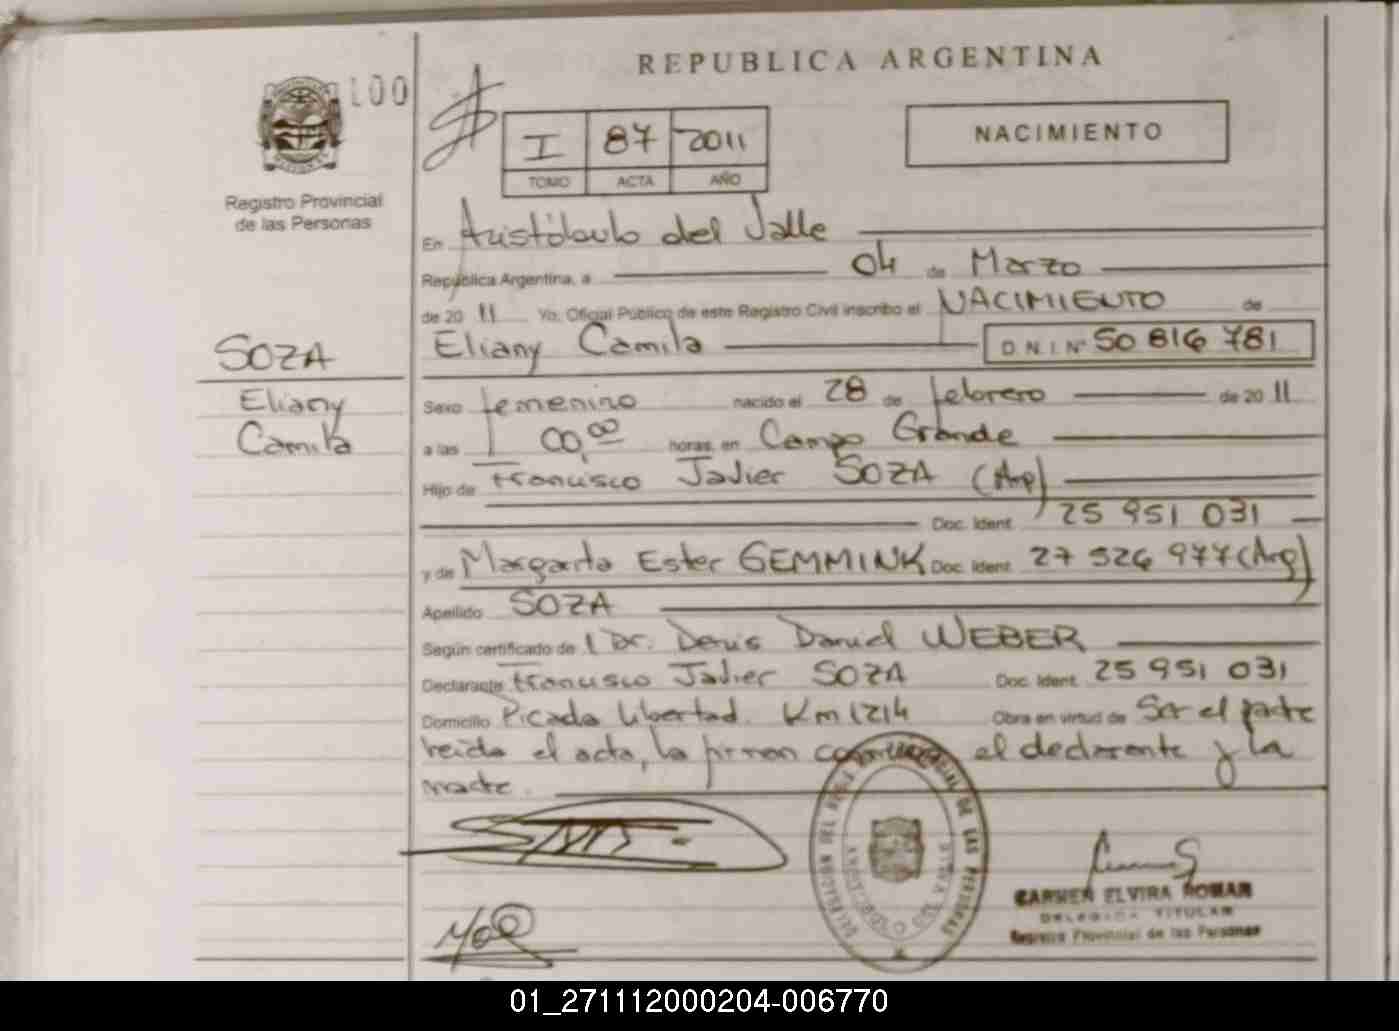 REPUBLICA ARGENTINA
100
I 87 2011
TOMO ACTA AÑO
NACIMIENTO
Registro Provincial
de las Personas
En Aristóbulo del Valle
República Argentina, a 04 de Marzo
de 20 11 Yo, Oficial Público de este Registro Civil inscribo el NACIMIENTO de
SOZA
Eliany Camila D.N.I. Nº 50 816 781
Eliany
Camila
Sexo femenino nacido el 28 de febrero de 20 11
a las 00,00 horas, en Campo Grande
Hijo de Francisco Javier SOZA (Arg)
Doc. Ident. 25 951 031
y de Margarita Ester GEMMINK Doc. Ident. 27 526 977 (Arg)
Apellido SOZA
Según certificado de l Dr. Denis Daniel WEBER
Declarante Francisco Javier SOZA Doc. Ident. 25 951 031
Domicilio Picada Libertad Km 1214 Obra en virtud de Ser el padre
leida el acta, la firman conmigo el declarante y la
madre.
DELEGACIÓN DEL REGISTRO PROVINCIAL DE LAS PERSONAS
ARISTOBULO DEL VALLE
CARMEN ELVIRA ROMAN
DELEGADA TITULAR
Registro Provincial de las Personas
01_271112000204-006770